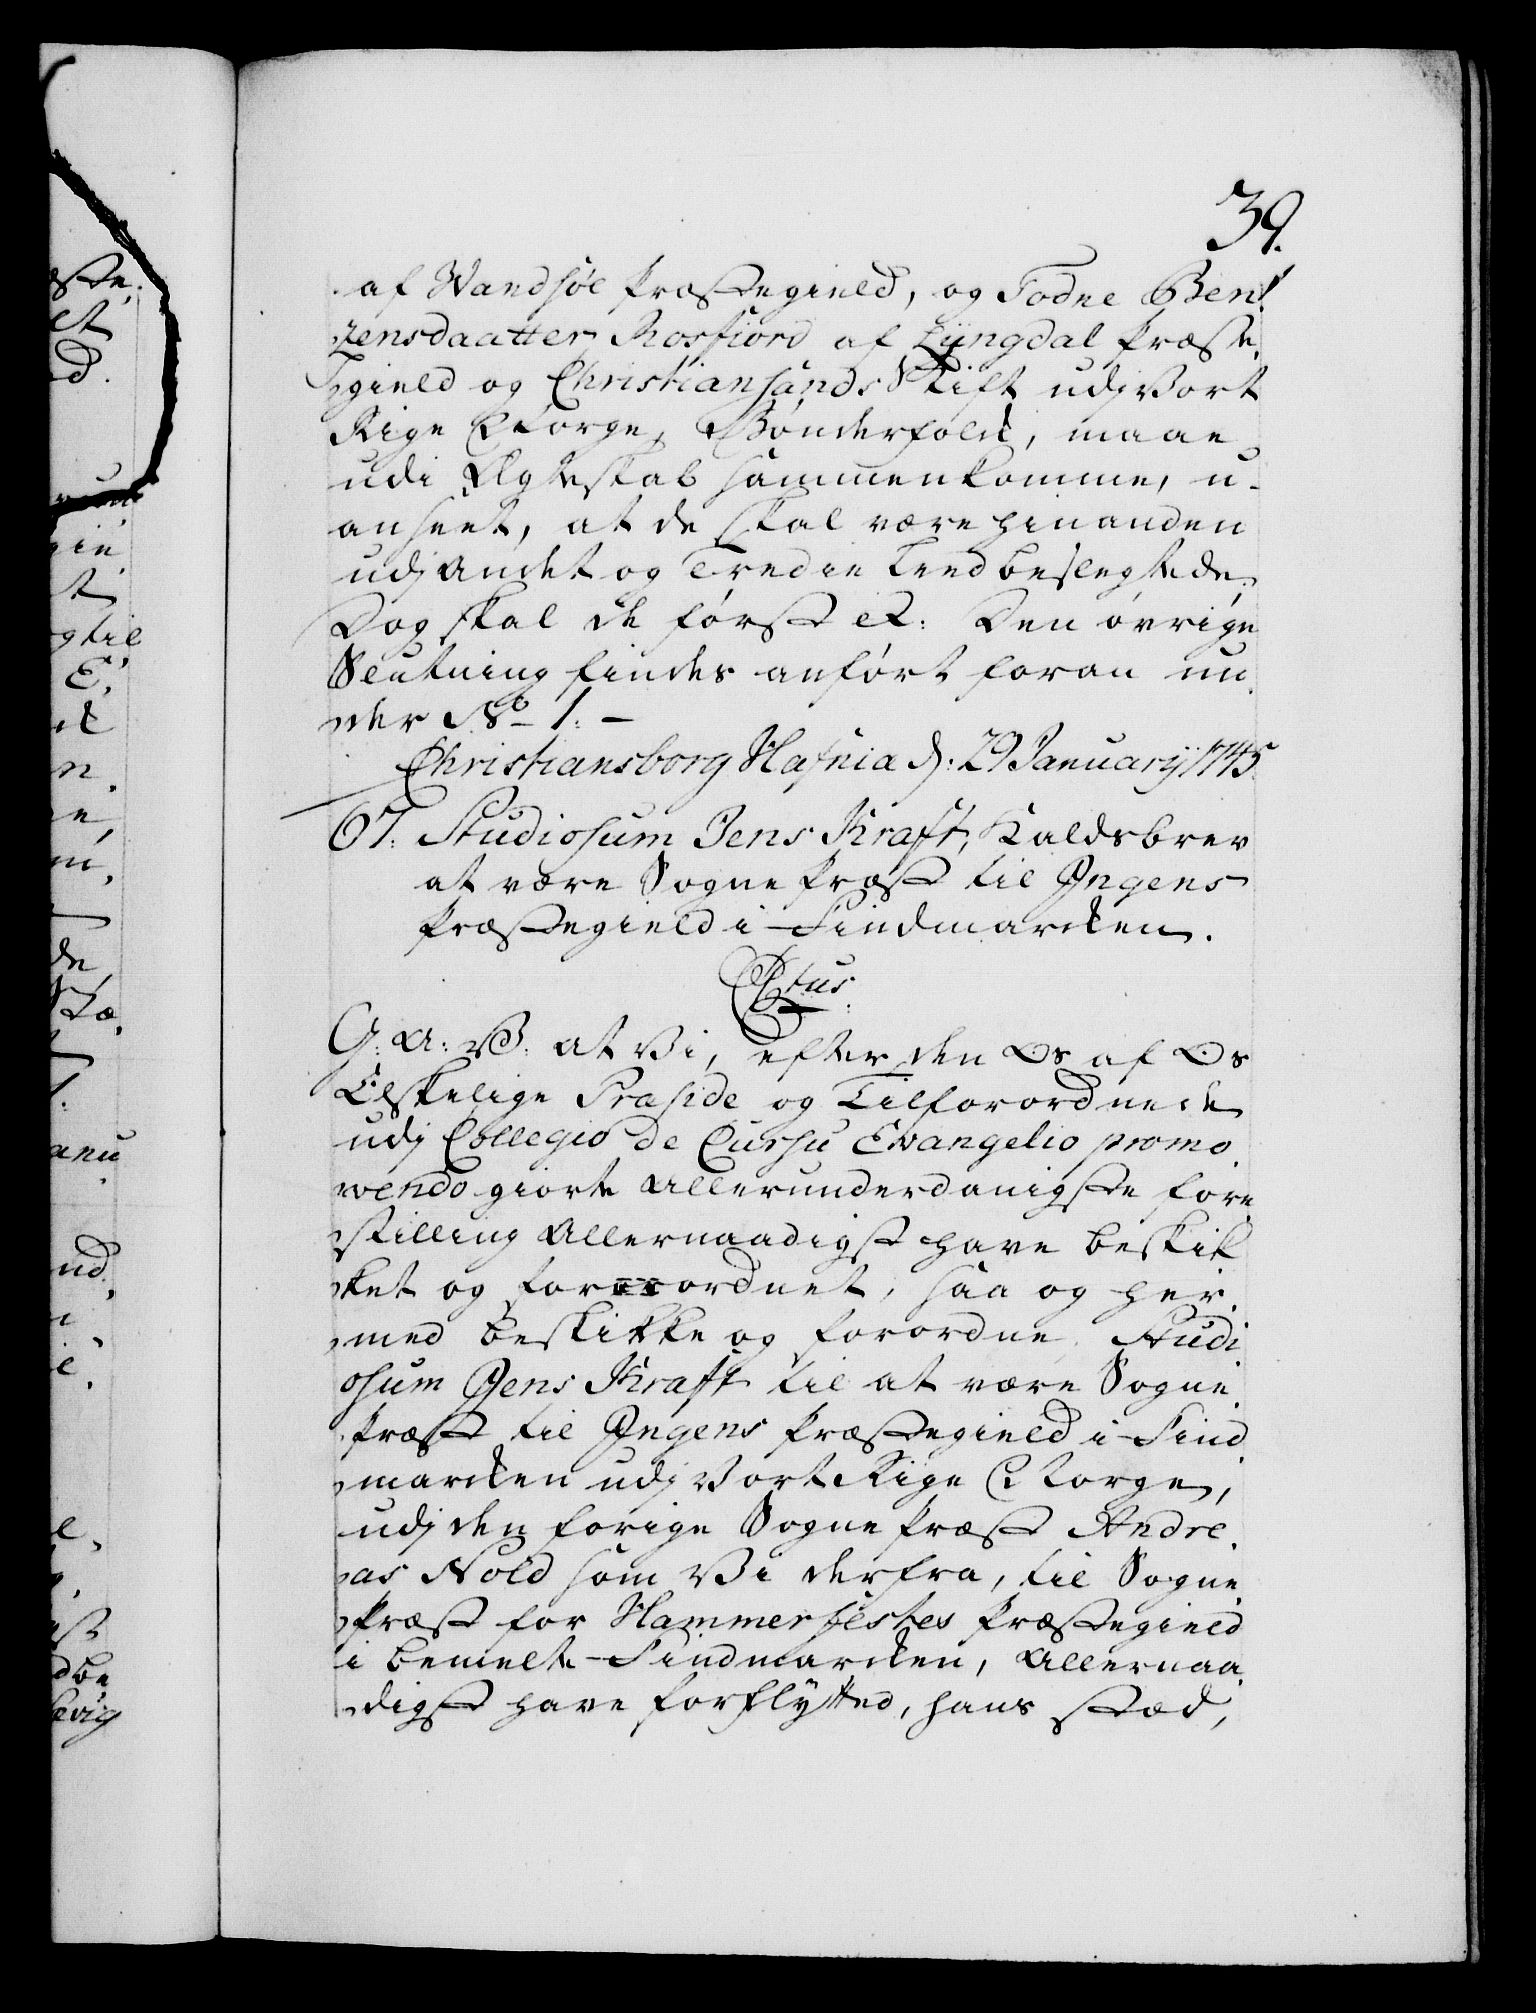 39.
af Wandsøe Præstegield, og Todne Ben-
zensdaatter Rosfiord af Lyngdal Præste-
gield og Christiansands Stift udj Vort
Rige Norge, Bønderfolk, maae
udi Ægteskab sammenkomme, u-
anseet, at de skal være hinanden
udj andet og Tredie Leed beslegtede.
Dog skal de først etc: Den øvrige
Slutning findes anført foran un-
der No 1. –
Christiansborg Hafnia d: 29 January 1745.
67. Studiosum Jens Kraft, Kaldsbrev
at være Sogne Præst til Ingens
Præstegield i Findmarcken.
C 6tus.
G: A: V: at Vi, efter den Os af Os
Elskelige Præside og Tilforordnede
udj Collegio de Cursu Evangelio promo-
vendo giorte Allerunderdanigste fore-
stilling Allernaadigst have beskik-
ket og forordnet, saa og her-
med beskikke og forordne, Studi-
osum Jens Kraft til at være Sogne-
Præst til Ingens Præstegield i Find-
marcken udj Vort Rige Norge,
udj den forige Sogne Præst Andre-
as Nold som Vi derfra, til Sogne-
Præst for Hammerfestes Præstegield
i bemelte Findmarcken, Allernaa-
digst have forflytted, hans stæd,